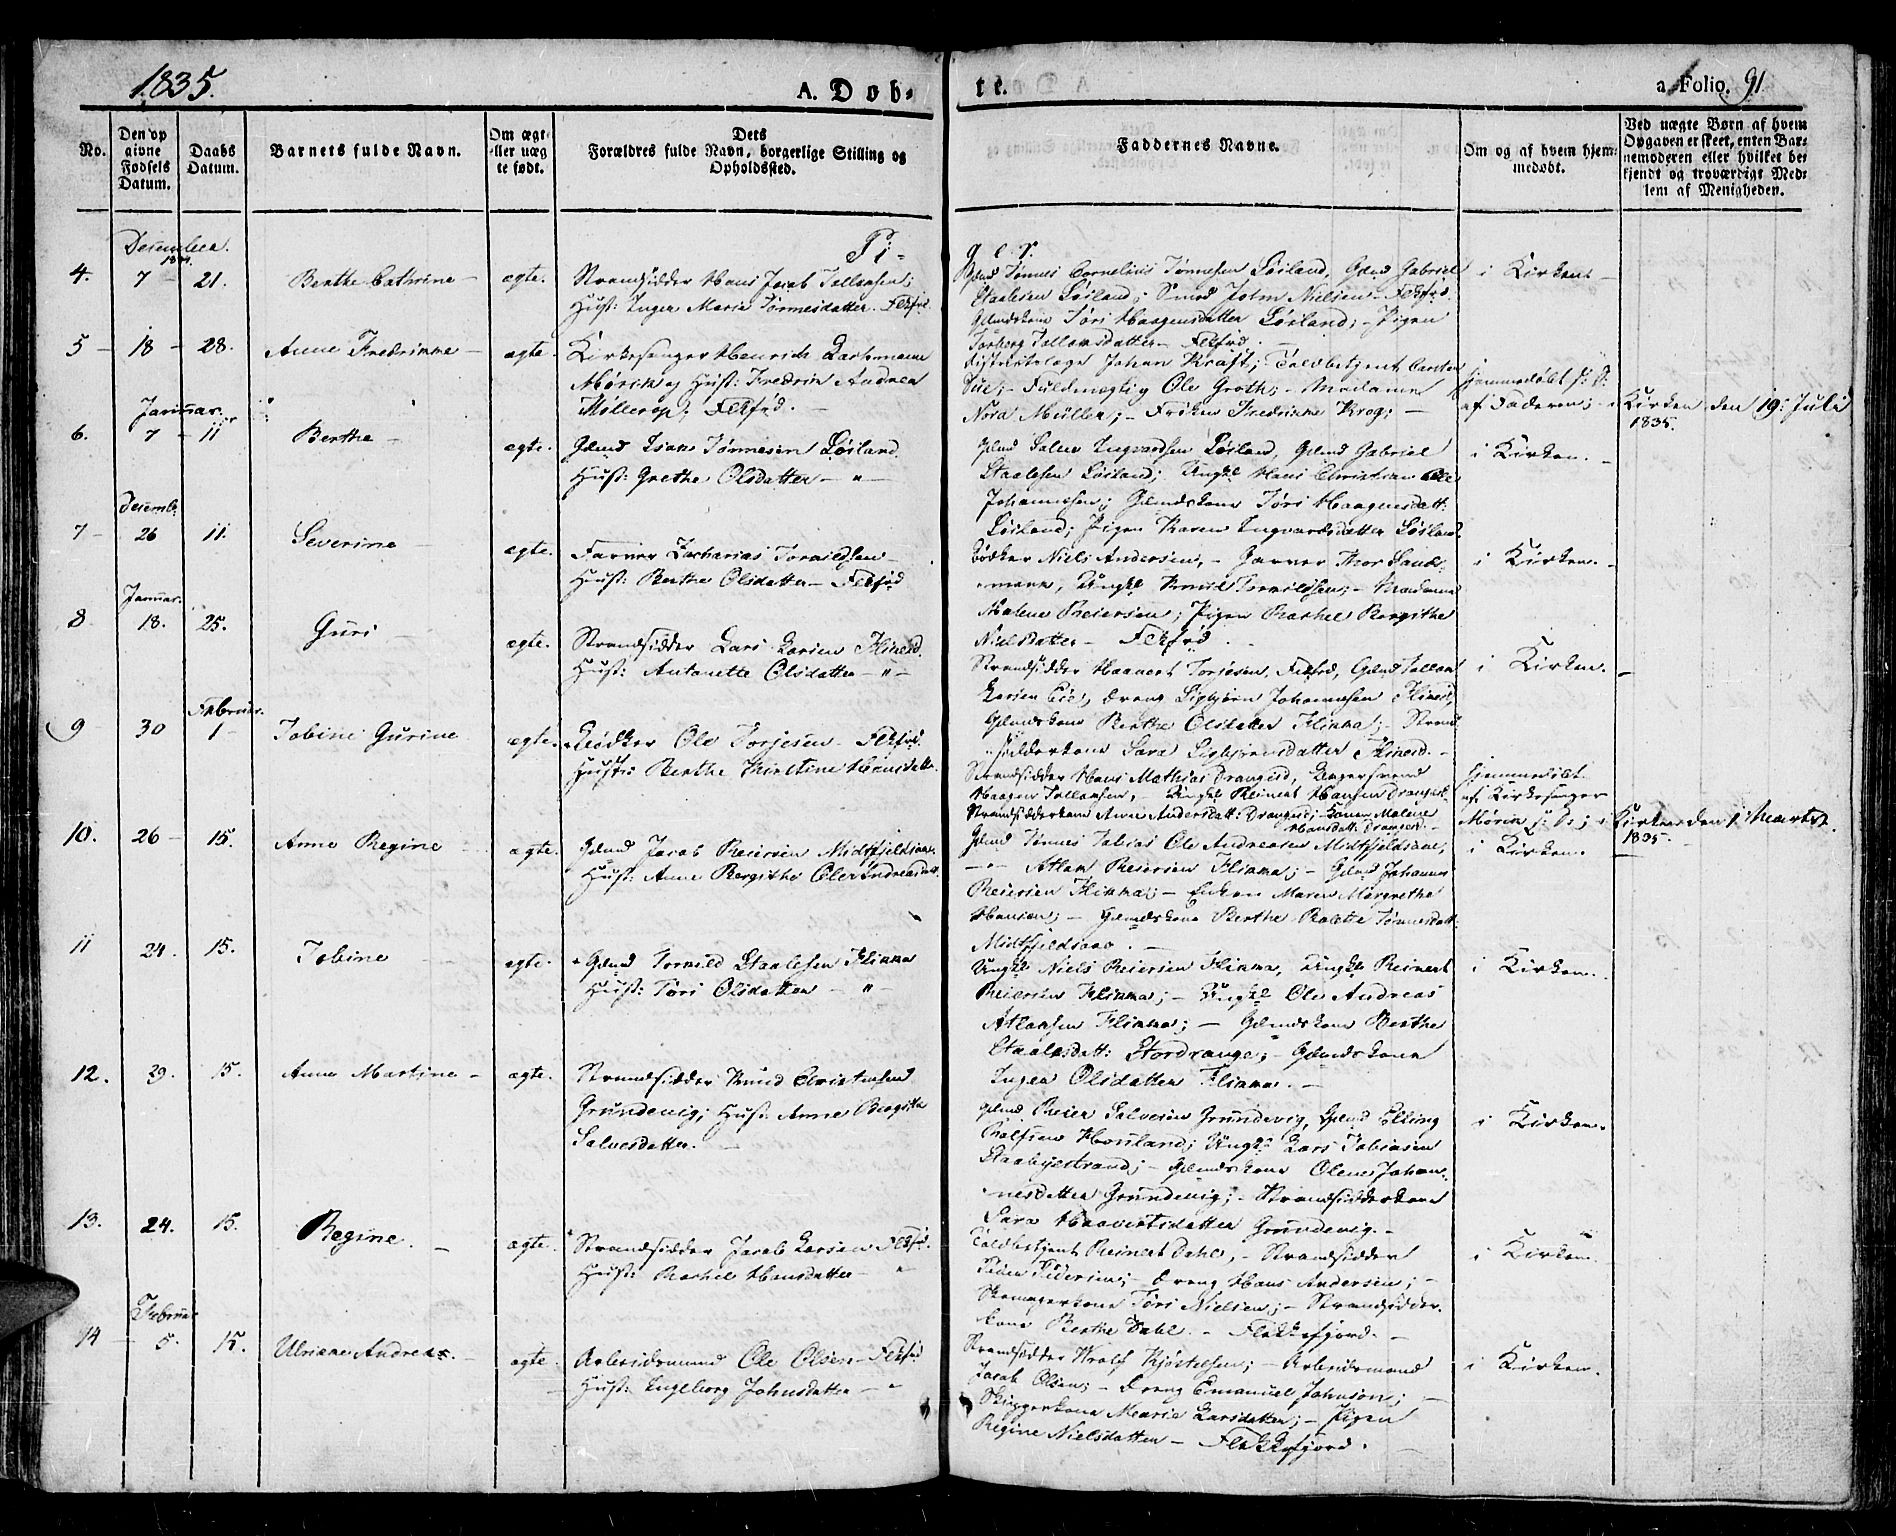 1835.
A. Døb-
te.
a. Folio. 91
No.
Den op
givne
Fødsels
Datum.
Daabs
Datum.
Barnets fulde Navn.
Om ægt
eller uæg
te født.
Dets
Forældres fulde Navn, borgerlige Stilling og
Opholdssted.
Faddernes Navne.
Om og af hvem hjem-
medøbt.
Ved uægte Børn af hvem
Opgaven er skeet, enten Bar-
nemoderen eller hvilket be
kjendt og troværdigt Med-
lem af Menigheden.
Pi-
ger.
4.
December
1834.
7 - 21.
Berthe Cathrine -
ægte.
Strandsidder Hans Jacob Tollaksen;
Hust: Inger Marie Tønnesdatter. Flkfrd
Gmd Tønnes Cornelius Tønnesen Løiland, Gmd Gabriel
Staalesen Løiland; Smed John Nielsen - Flkfrd.
Gmdskone Tøri Haagensdatter Løiland; - Pigen
Torborg Tollaksdatter - Flkfrd.
i Kirken -
5 - 18 - 28.
Anne Fredrikke -
ægte.
Kirkesanger Henrich
Mørch og Hust: Fredrik Andrea
Møllerop. Flkfrd. -
Districtslæge Johan Kraft; Toldbetjent Carsten
Due; - Fuldmægtig Ole Groth; - Madame
Nora Müller; - Frøken Fredrikke Krog; -
Hjemmedøbt
af Faderen; - i Kirken den 19: Juli
1835.
6.
Januar.
7 - 11
Berthe -
ægte.
Gmd Isak Tønnesen Løiland.
Hust: Grethe Olsdatter - " -
Gmd Salve Ingvardsen Løiland, Gmd Gabriel
Staalesen Løiland; Ungkl Hans Christian
Johannesen; Gmdskone Tøri Haagensdatt:
Løiland; Pigen Karen Ingvardsdatter Løiland
i Kirken. -
7 -
Decemb:
26 11.
Severine -
ægte.
Farver Zacharias Tormodsen -
Hust: Berthe Olsdatter - Flkfrd
Bødker Niels Andersen, - Garver Thor Sand-
mark, Ungkl Knud; - Madame
Malene Reiersen; Pigen Rachel Bergithe
Nielsdatter - Flkfrd.
i Kirken. -
8
Januar.
18. 25.
Guri -
ægte.
Strandsidder Lars Larsen
Hust: Antonette Olsdatter - " -
Strandsidder Haavert Torjesen, Flkfrd, Gmd Tollak
Larsen Eie, dreng Sigbjørn Johannesen
Gmdskone Berthe Olsdatter Flikka; - Strand
sidderkone Sara Sigbjørnsdatter
i Kirken. -
9 30
Februar.
1 -
Tobine Gurine
ægte.
Bødker Ole Torjesen - Flkfrd.
Hust: Berthe Kirstine Hansdatter
Strandsidder Hans Mathias Drangeid,
Haagen Tollaksen, Ungkl Reinert Hansen Drangeid.
Strandsidderkone Anne Andersdatt: Drangeid; Konen Malene
Hansdatt: Drangeid. -
Hjemmedøbt
af Kirkesanger
Mørch; i Kirken den 1 Marts.
1835.
10. 26 - 15.
Anne Regine -
ægte.
Gmd Jacob Reiersen Midtfjeldsaae
Hust: Anne Bergithe Ole Andreasdatter
Gmd Tønnes Tobias Ole Andreasen Midtfjeldsaae,
- " - Atlak Reiersen Flikka; - Gmd Johannes
Reiersen Flikka; - Enken Maren Margrethe
Hansen; - Gmdskone Berthe Tønnesdatt:
Midtfjeldsaae. -
i Kirken. -
11 24. 15.
Tobine -
ægte.
Gmd Tormod Staalesen Flikka
Hust: Tøri Olsdatter - " -
Ungkl Niels Reiersen Flikka, Ungkl Reinert
Reiersen Flikka; - Ungkl Ole Andreas
Atlaksen Flikka; - Gmdskone Berthe
Staalesdatt: Stordrange; - Gmdskone
Inger Olsdatter Flikka. -
i Kirken. -
12. 29. 15.
Anne Martine -
ægte.
Strandsidder Knud Christensen
Grundevig; Hust: Anne Bergithe
Salvesdatter. -
Gmd Reier Salvesen Grundevig, Gmd Elling
Rolfsen Houland; Ungkl Lars Tobiasen
Staabyestrand; - Gmdskone Olene Johan-
nesdatter Grundevig; - Strandsidderkone
Sara Haavertsdatter Grundevig. -
i Kirken.
13. 24. 15.
Regine. -
ægte.
Strandsidder Jacob Larsen Flkfrd.
Hust: Rachel Hansdatter - "
Toldbetjent Reinert Dahl, - Strandsidder
Peder Pedersen; - dreng Hans Andersen; -
Skomagerkone Tøri Nielsen; - Strandsidder-
kone Berthe Dahl. - Flekkefjord. -
i Kirken.
14 -
Februar
5. 15.
Ulriane Andrea. -
ægte.
Arbeidsmand Ole Olsen - Flkfrd
Hust: Ingeborg Johnsdatter - "
Strandsidder Wrolf Kjøstelsen; - Arbeidsmand
Jacob Olsen; - dreng Emanuel Johnson; -
Skipperkone Marie Larsdatter; - Pigen
Regine Nielsdatter - Flekkefjord. -
i Kirken.